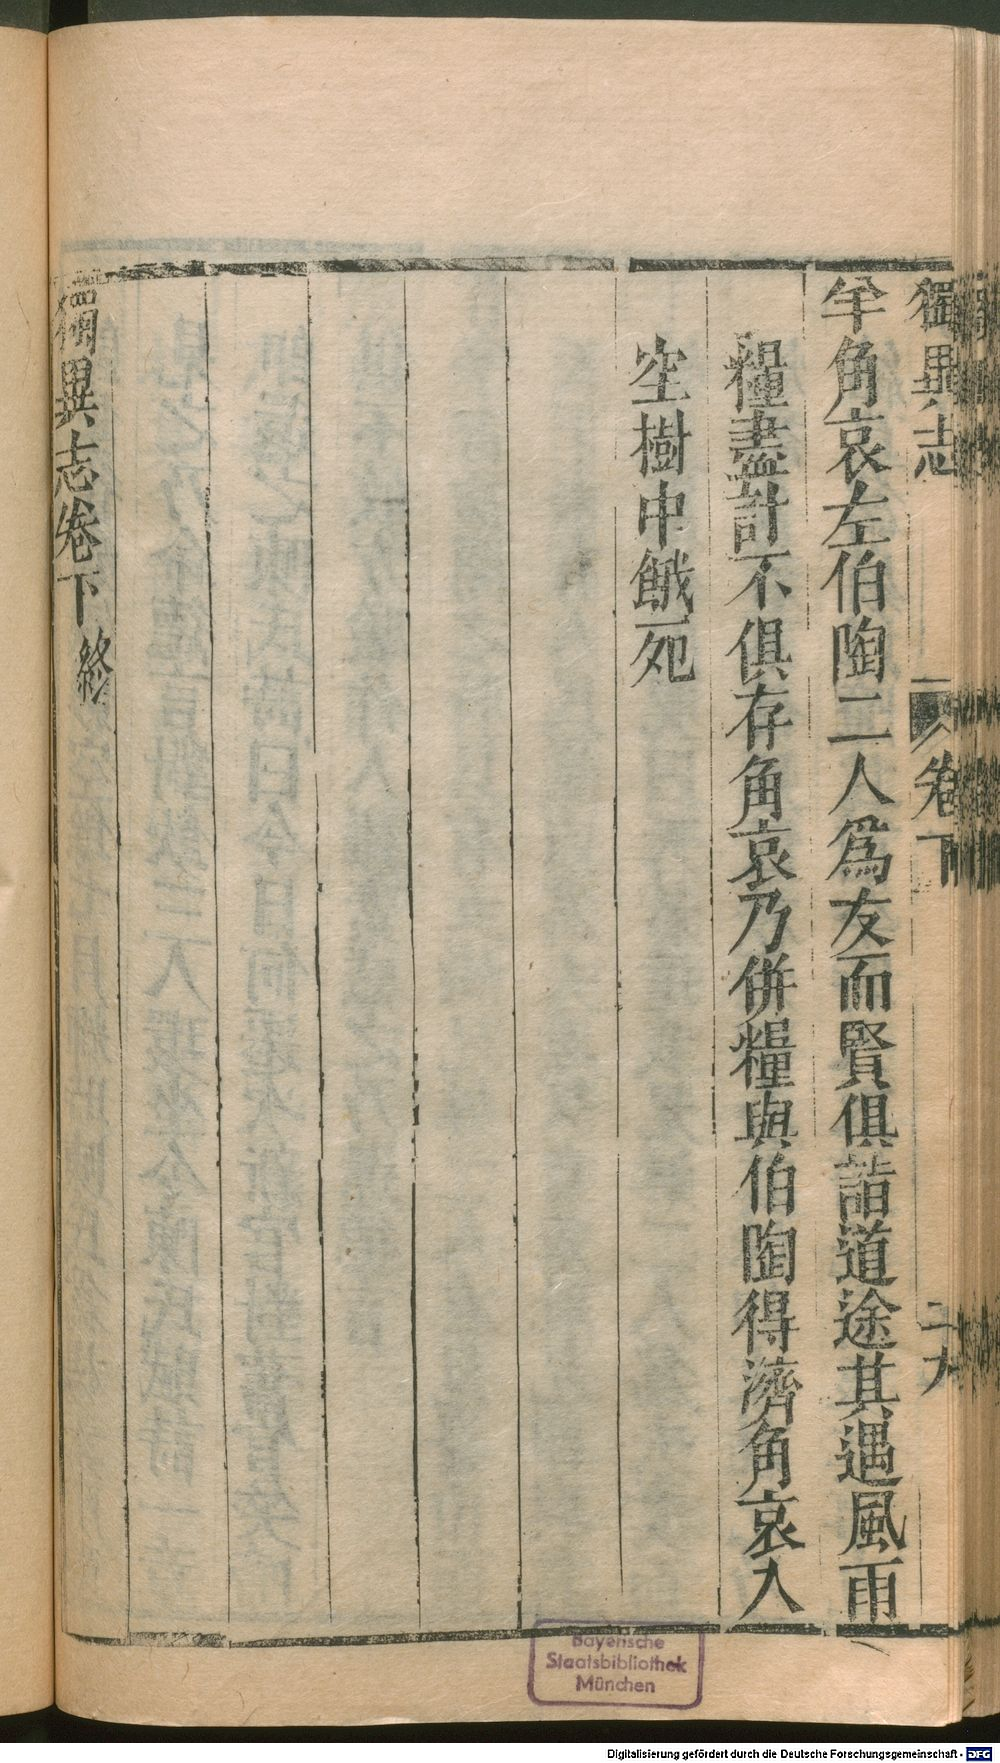 獨異志
卷下
二十九
羊角哀左伯陶二人爲友而賢俱詣道途其遇風雨
糧盡計不俱存角哀乃併糧與伯陶得濟角哀入
空樹中餓死
獨異志卷下終
Bayerische
Staatsbibliothek
München
Digitalisierung gefördert durch die Deutsche Forschungsgemeinschaft - DFG